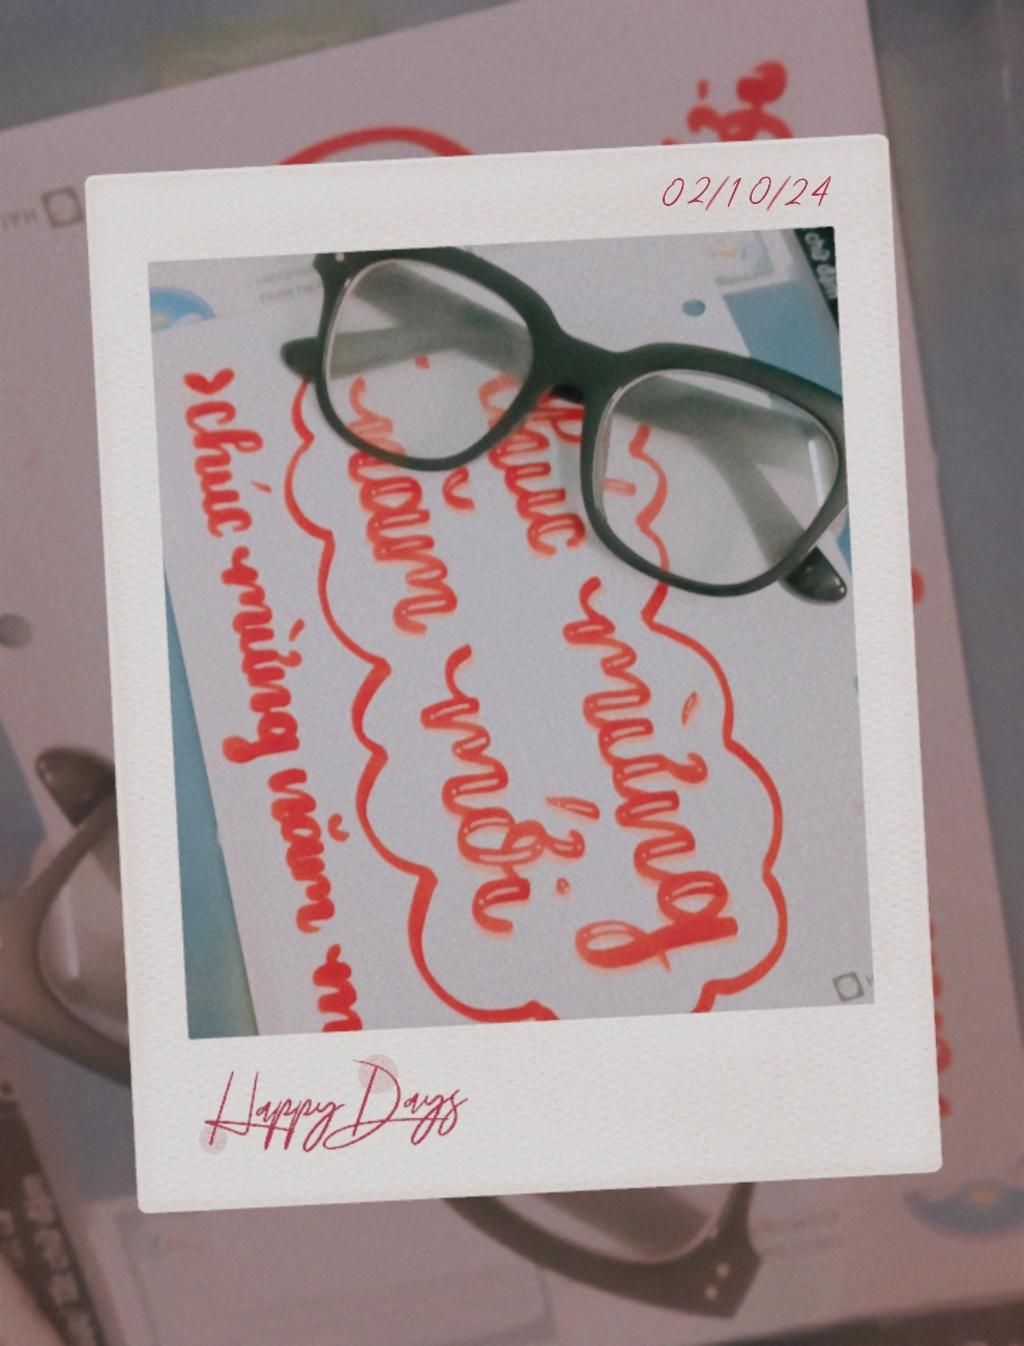 02/10/24
chúc mừng
năm mới
chúc mừng năm m
Happy Days